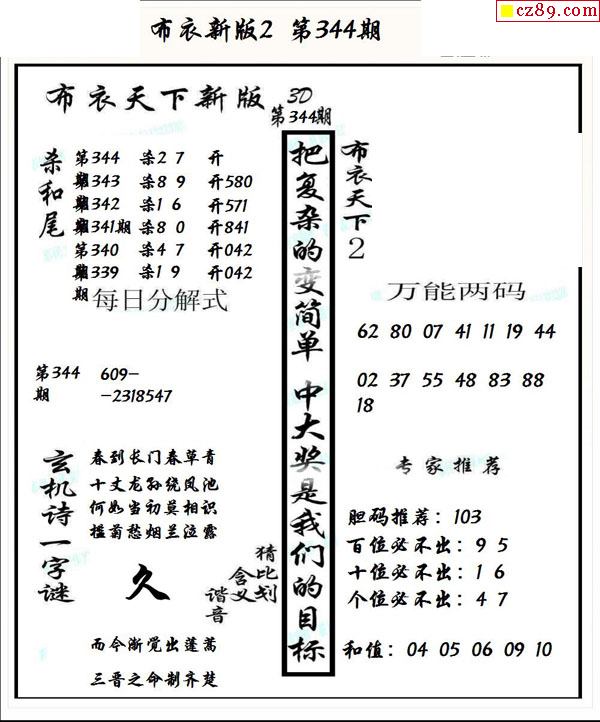 cz89.com
布衣新版2 第344期
布衣天下新版
3D
第344期
杀和尾
第344 杀27 开
期343 杀89 开580
期342 杀16 开571
第341期 杀80 开841
第340 杀47 开042
期339 杀19 开042
期
每日分解式
第344 609-
期 -2318547
玄机诗一字谜
春到长门春草青
十丈龙孙绕凤池
何如当初莫相识
槛菊愁烟兰泣露
久
猜比划
含义
谐音
而今渐觉出蓬蒿
三晋之命制齐楚
把复杂的变简单 中大奖是我们的目标
布衣天下2
万能两码
62 80 07 41 11 19 44
02 37 55 48 83 88
18
专家推荐
胆码推荐：103
百位必不出：9 5
十位必不出：1 6
个位必不出：4 7
和值：04 05 06 09 10